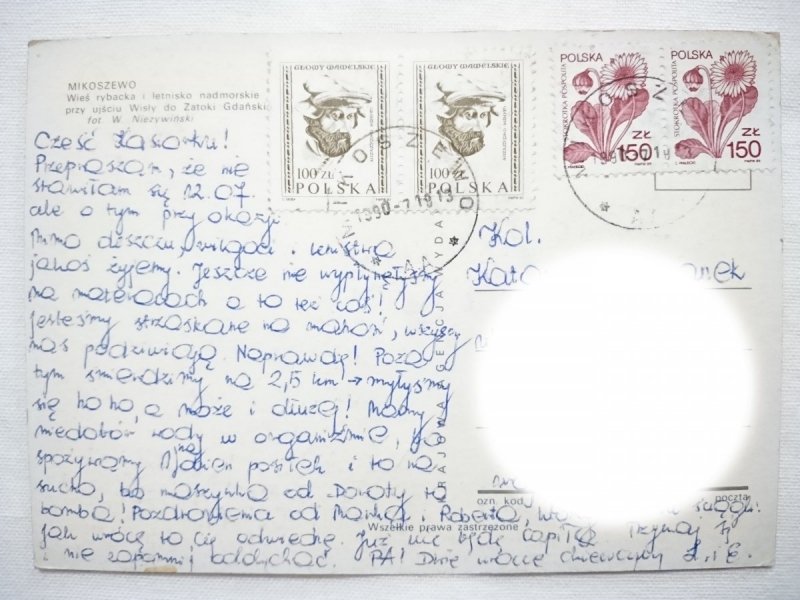 MIKOSZEWO
Wieś rybacka i letnisko nadmorskie
przy ujściu Wisły do Zatoki Gdańskiej
fot W. Niezywiński
GŁOWY WAWELSKIE
100 ZŁ
POLSKA
GŁOWY WAWELSKIE
100 ZŁ
POLSKA
POLSKA
STOKROTKA POSPOLITA
ZŁ
150
POLSKA
STOKROTKA POSPOLITA
ZŁ
150
MIKOSZEWO
1990-7.19.13
Cześć
Przepraszam, że nie
stawiłam się 12.07.
ale o tym przy okazji
Mimo deszczu, wilgoci i lenistwa
jakoś żyjemy. Jeszcze nie wypłynęłyśmy
na materacach a to też coś!
Jesteśmy strzaskane na mahoń, wszyscy
nas podziwiają. Naprawdę! Poza
tym śmierdzimy na 2,5 km → myłyśmy
się ho ho, a może i dłużej! Mamy
niedobór wody w organizmie, bo
spożywamy 1 na dzień posiłek i to na
sucho, bo maszynka od Doroty to
bomba! Pozdrowienia od Mańka i Roberta,
jak wrócę to cię odwiedzę. Już nie będę Trzymaj
i nie zapomnij oddychać. PA!
Kol.
Kata
nek
KRAJOWA AGENCJA WYDAWNICZA
ozn. kod
poczta
Wszelkie prawa zastrzeżone